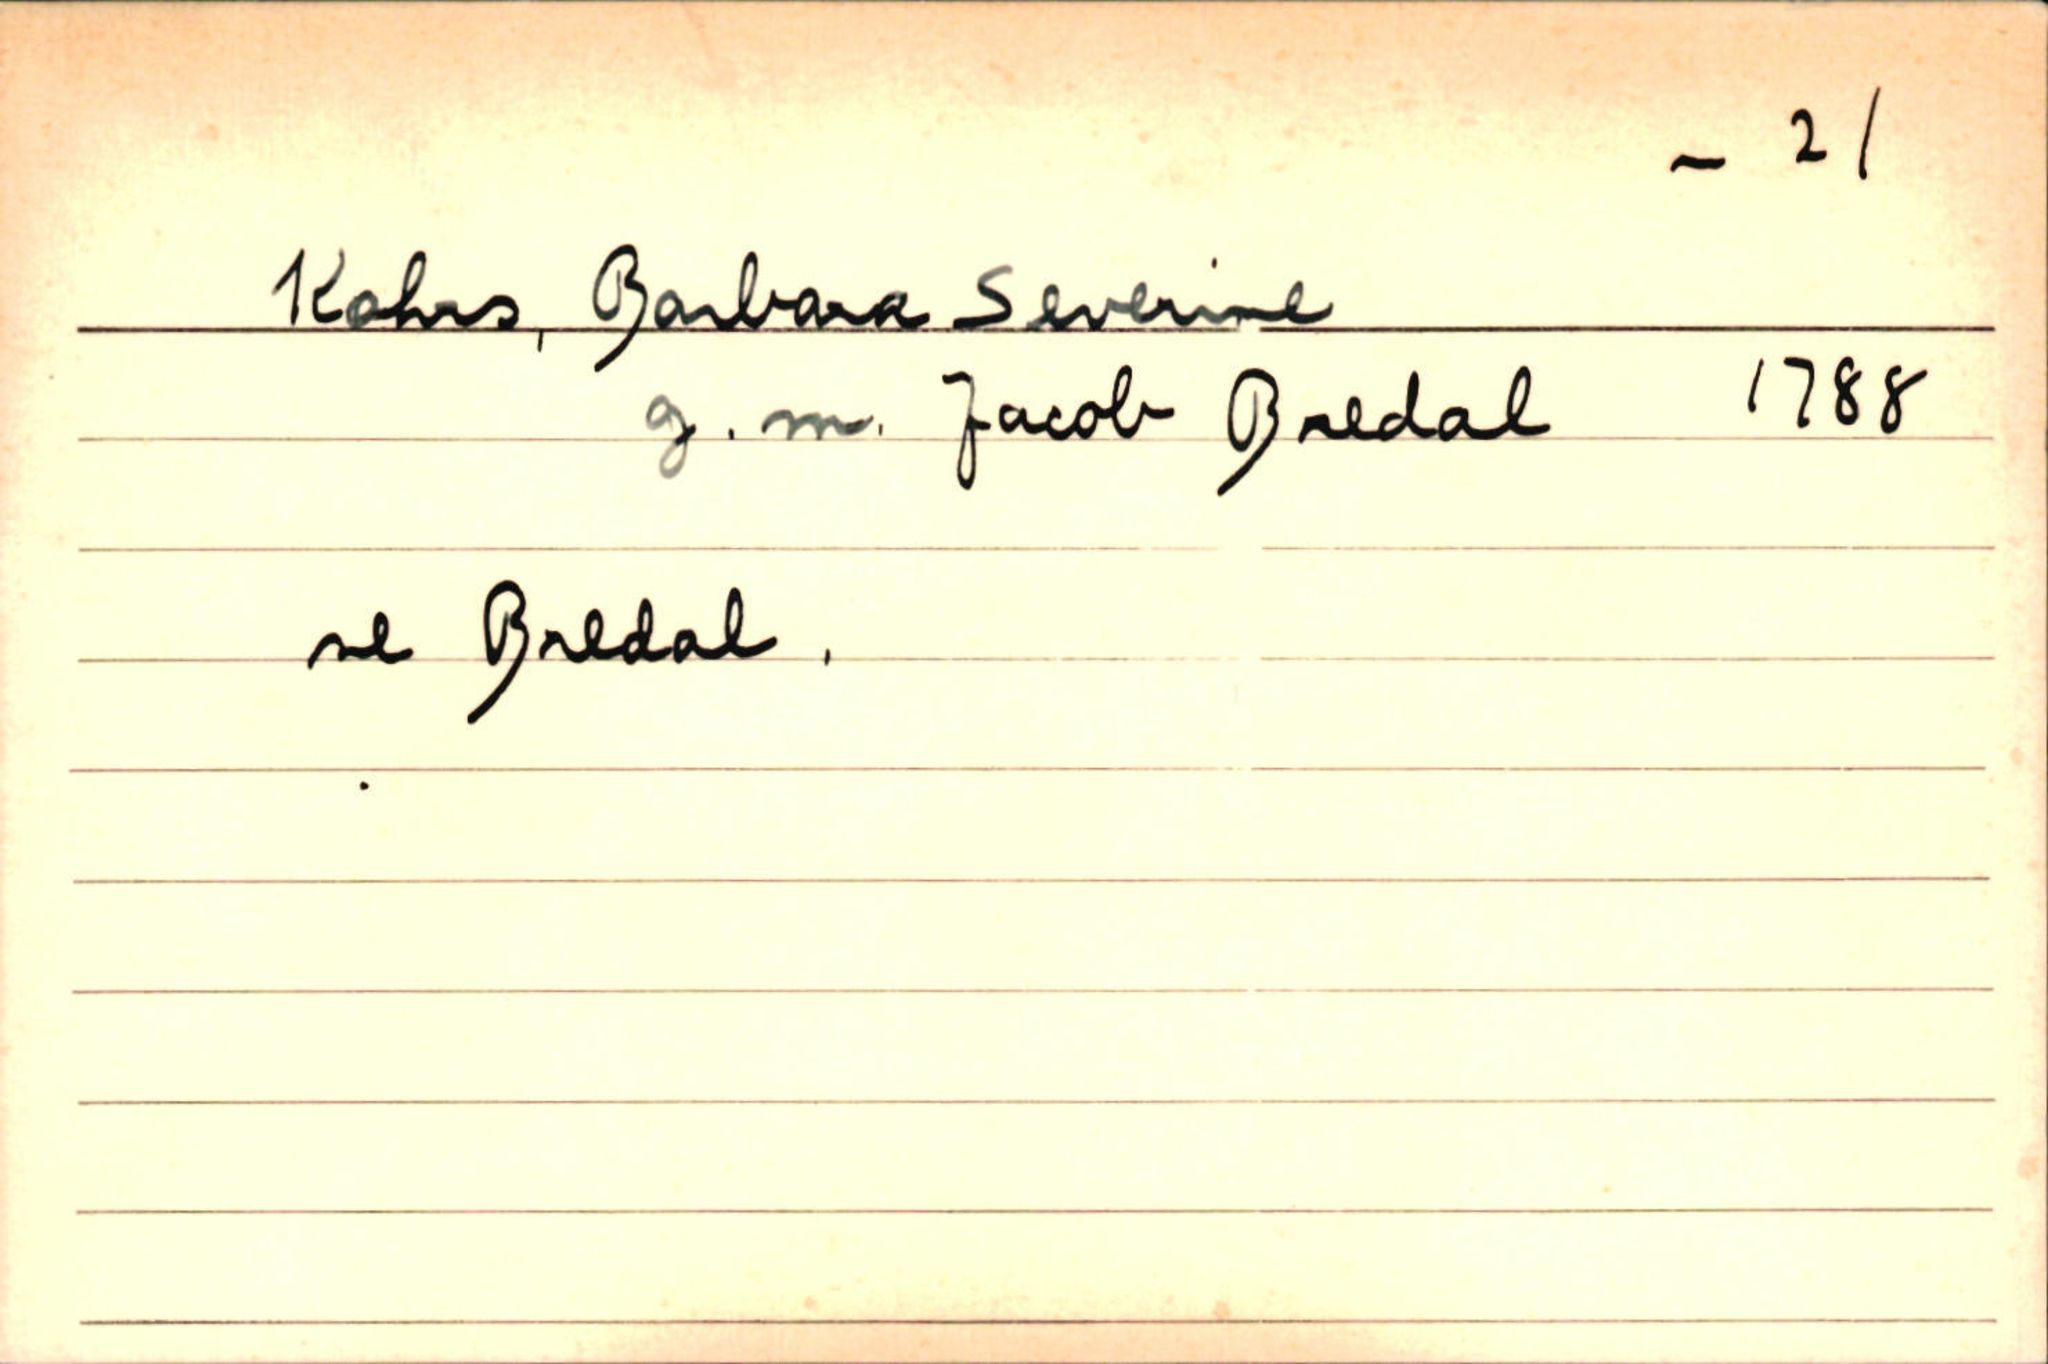 - 21
Kahrs, Barbara Severine
g. m. Jacob Bredal 1788
se Bredal.